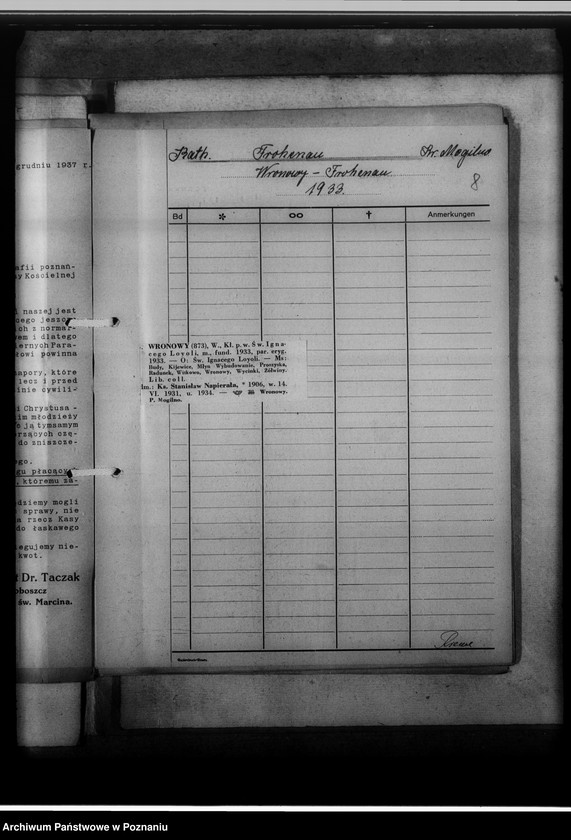 grudniu 1937 r.
afii poznań-
y Kościelnej
i naszej jest
cego jeszcze
ch z normar-
em i dlatego
iernych Para-
łowi powinna
apory, które
lecz i przed
inie cywili-
i Chrystusa -
im młodzieży
ją tymsamym
rzących czą-
do zniszcze-
go.
gu płacący
, któremu za-
dziemy mogli
sprawy, nie
a rzecz Kasy
do łaskawego
egujemy nie-
kwot.
Dr. Taczak
oboszcz
św. Marcina.
Kath. Frohenau Kr. Mogilno
Wronowy - Frohenau
1933.
8
Bd * oo † Anmerkungen
WRONOWY (873), W., Kl. p. w. Św. Igna-
cego Loyoli, m., fund. 1933, par. eryg.
1933. — O: Św. Ignacego Loyoli. — Ma:
Body, Kijewice, Młyn Wybudowanie, Proszyska,
Radunek, Witkowo, Wronowy, Wycinki, Żółwiny.
Lib. coll.
Im.: Ks. Stanisław Napierała, * 1906, w. 14.
VI. 1931, u. 1934. — Wronowy.
P. Mogilno.
Archiwum Państwowe w Poznaniu